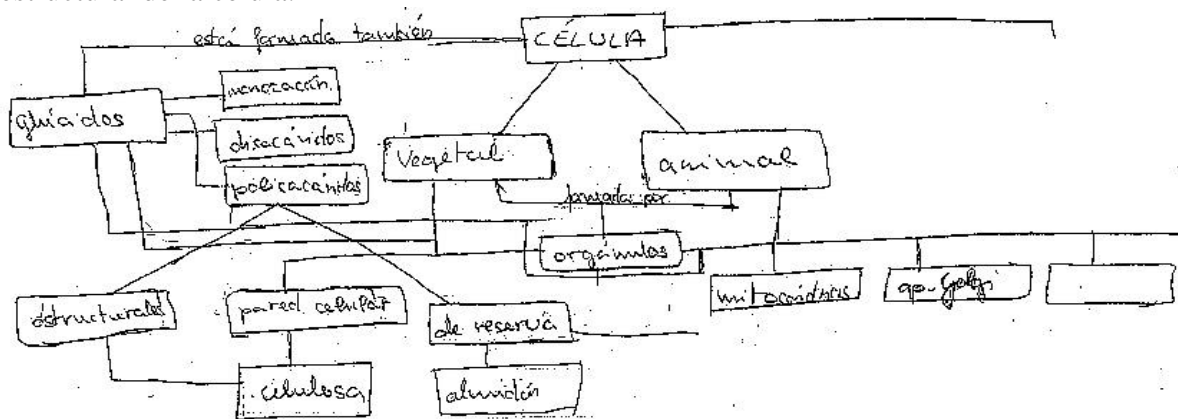 está formada también
CÉLULA
glúcidos
monozacán.
disacáridos
polisacáridos
vegetal
animal
formada por
orgánulos
mitocóndrias
ap. Golgi
estructurales
pared celular
de reserva
celulosa
almidón